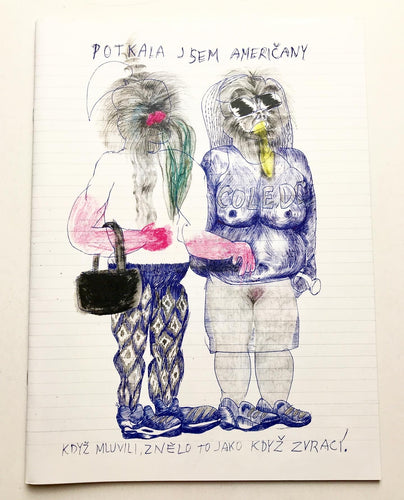 POTKALA JSEM AMERIČANY
COLEDO
KDYŽ MLUVILI, ZNĚLO TO JAKO KDYŽ ZVRACÍ!